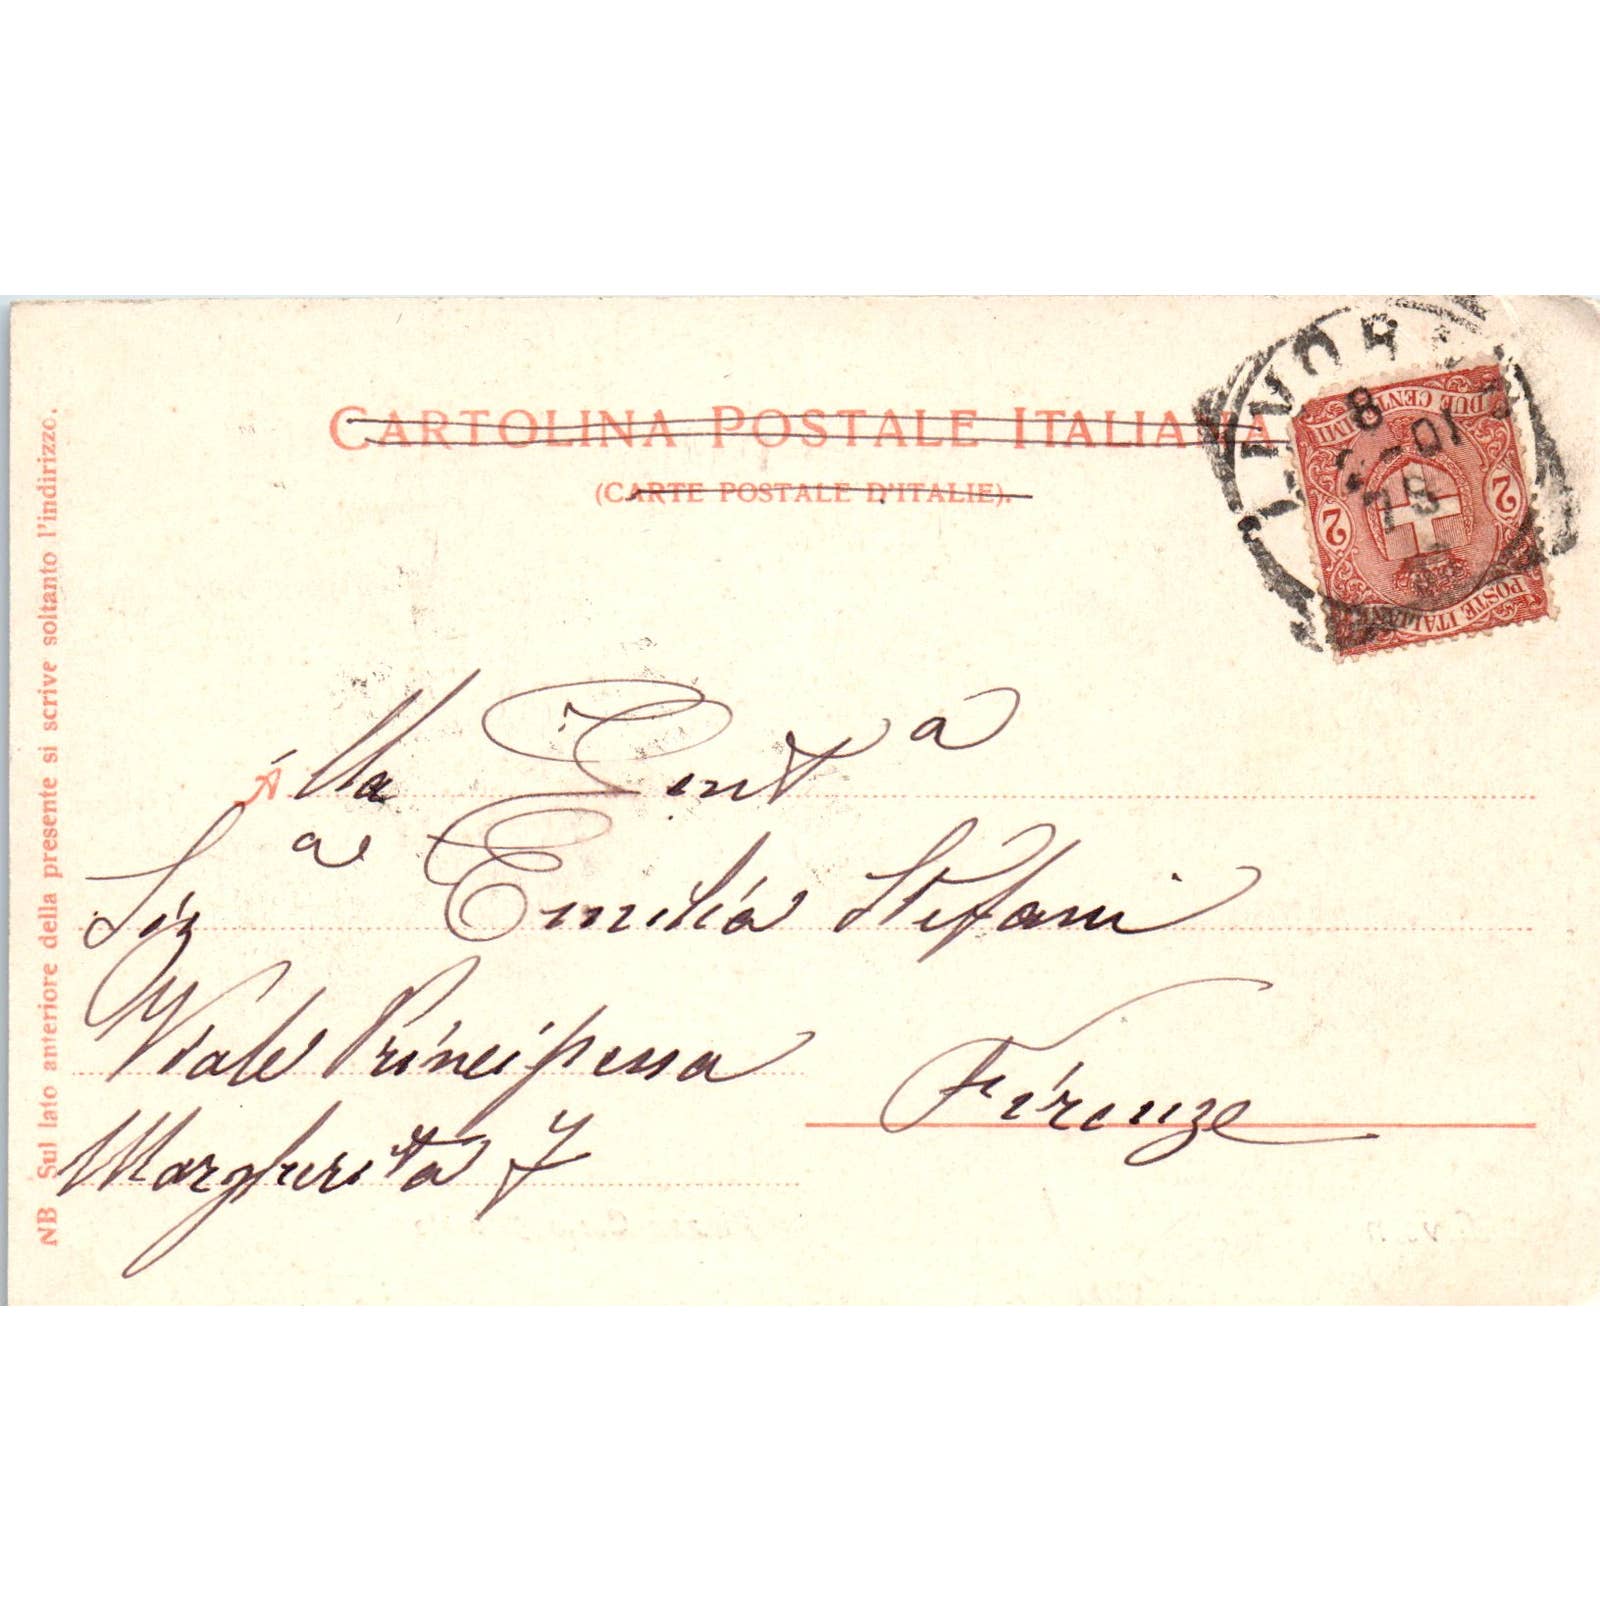 CARTOLINA POSTALE ITALIANA
(CARTE POSTALE D'ITALIE).
LIVOR
8
-01
7S
DUE CENTESIMI
2 2
POSTE ITALIANE
Alla Gent a
Sig a Emilia Stefani
Viale Principessa
Margherita 7
Firenze
NB Sul lato anteriore della presente si scrive soltanto l'indirizzo.